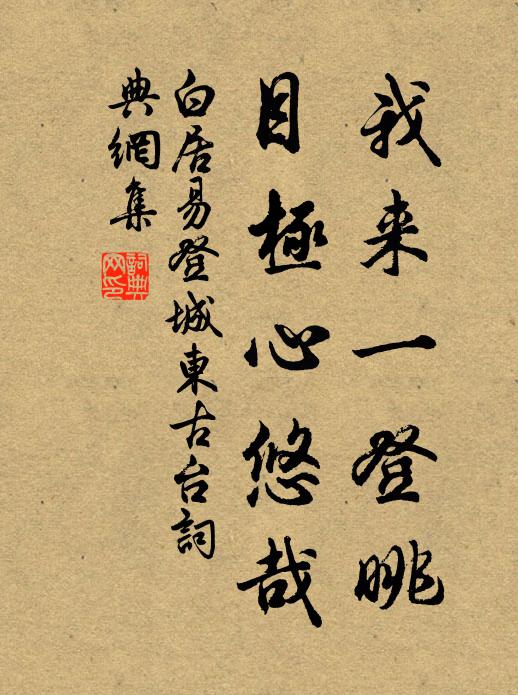 我来一登眺
目極心悠哉
白居易登城東古台詞
典網集
詞典
网印